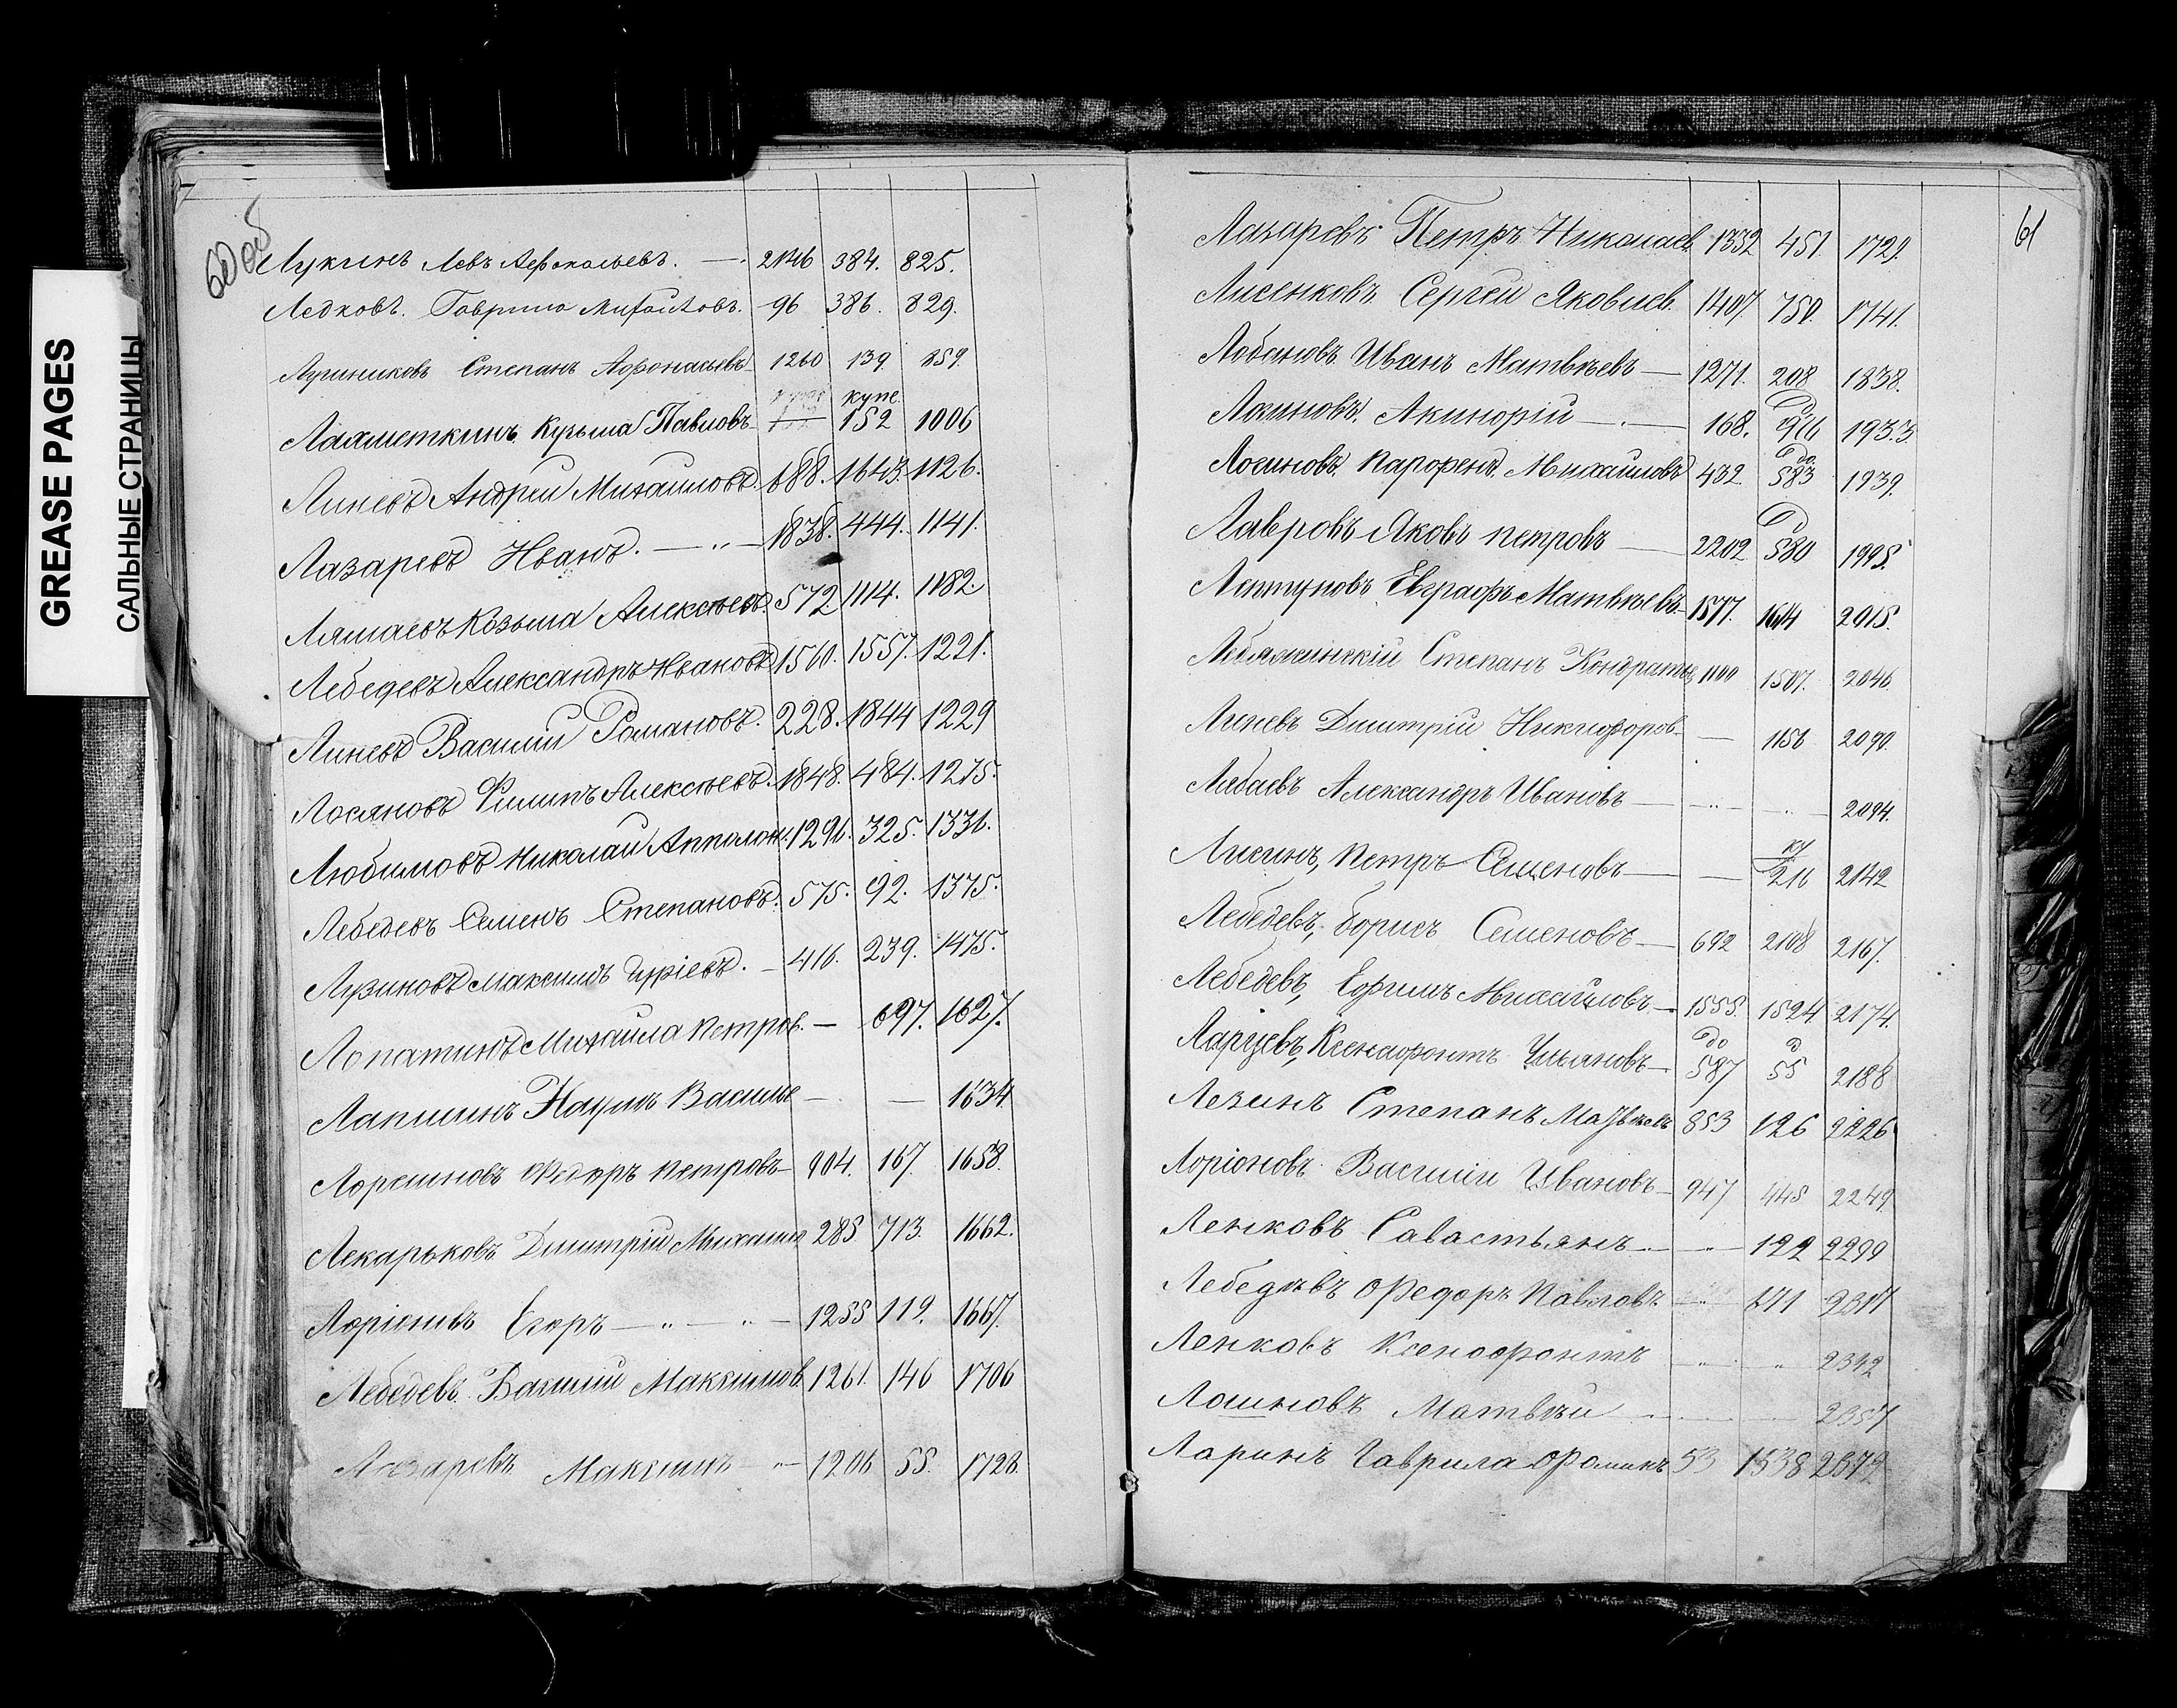 GREASE PAGES
САЛЬНЫЕ СТРАНИЦЫ
60 об
Лукинъ Левъ Афонасьевъ. — 2146 384. 825.
Ледковъ. Гаврила Михайловъ. 96 386. 829.
Лушниковъ Степанъ Афонасьевъ 1260 139. 859.
купе.
Лахметкинъ Кузьма Павловъ — 152 1006
Линевъ Андрей Михаиловъ. 688. 1643. 1126.
Лазаревъ Иванъ. — „ — 1838. 444. 1141.
Лямаевъ Козьма Алексѣевъ. 572 1114. 1182.
Лебедевъ Александръ Ивановъ 1560. 1557. 1221.
Линевъ Василий Романовъ. 228. 1844 1229
Лосяновъ Филипъ Алексѣевъ. 1848. 484. 1275.
Любимовъ Николай Апполон. 1296. 325. 1336.
Лебедевъ Семенъ Степановъ. 575. 92. 1375.
Лузиновъ Максимъ Гуріевъ. — 416. 239. 1475.
Лопатинъ Михаила Петров. — 697. 1627.
Лапшинъ Наумъ Василье — — 1634.
Лорешновъ Федоръ Петровъ 904. 167. 1658.
Лекарьковъ Дмитрій Михаил 285 713. 1662.
Ларіоновъ Егоръ — „ — „ — 1255 119. 1667.
Лебедевъ. Василий Максимов. 1261. 146 1706
Лазаревъ Максимъ „ — 1206 55. 1728.
61
Лазаревъ Петръ Николаев. 1352 451. 1729.
Лисенковъ Сергей Яковлев. 1407. 750. 1741.
Лобановъ Иванъ Матвѣевъ — 1271. 208 1838.
Логиновъ. Акиндрій — . — 168. 916 1933.
до
Логиновъ. Парфенъ. Михайловъ 432. 583 1939.
Лавровъ Яковъ Петровъ — 2202 580 1995.
Лептуновъ Евграфъ Матвѣевъ 1577. 1614 2015.
Лебяжинскій Степанъ Кондратье 1100 1507. 2046.
Линевъ Дмитрій Никифоров. — 1156 2090.
Лябаевъ Александръ Ивановъ — — „ — 2094.
ку
Лисинъ, Петръ Семеновъ — — 216 2142
Лебедевъ, Борисъ Семеновъ — 692 2108 2167.
Лебедевъ, Ефимъ Михайловъ — 1555. 1524 2174.
до
Ларцевъ, Ксенофонтъ Ульяновъ — 587 55 2188
Лезинъ Степанъ Матвѣевъ 853 126 2226
Ларіоновъ Василій Ивановъ — 947 445 2249
Ленковъ Савастьянъ — „ — 122 2299
Лебедевъ Федоръ Павловъ — „ 171 2317
Ленковъ Ксенофонтъ „ „ 2342
Лошновъ Матвѣй — 2357
Ларинъ Гаврила Фоминъ 53 1538 2372